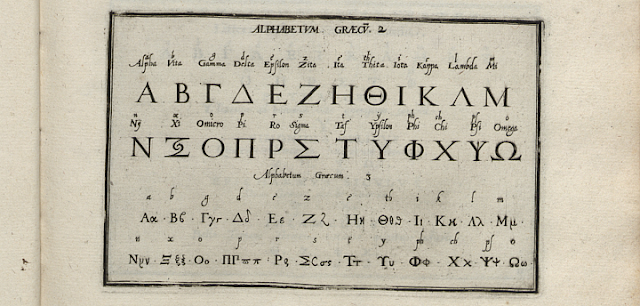 ALPHABETVM GRÆCV̄. 2
a b g d e z i th i k l m
Alpha Vita Gamma Delta Epsilon Zita Ita Thita Iota Kappa Lambda Mi
Α Β Γ Δ Ε Ζ Η Θ Ι Κ Λ Μ
n x o p r s t y ph ch ps o
Ny Xi Omicro Pi Ro Sigma Taf Ypsilon Phi Chi Psi Omega
Ν Ξ Ο Π Ρ Σ Τ Υ Φ Χ Ψ Ω
Alphabetum Græcum. 3
a b g d e z e th i k l m
Αα · Ββ · Γγ · Δδ · Εε · Ζζ · Ηη · Θθϑ · Ιι · Κκ · Λλ · Μμ ·
n x o p r s t y ph ch ps o
Νν · Ξξ · Οο · Πϖπ · Ρρ · ΣCσς · Ττ · Υυ · Φφ · Χχ · Ψψ · Ωω